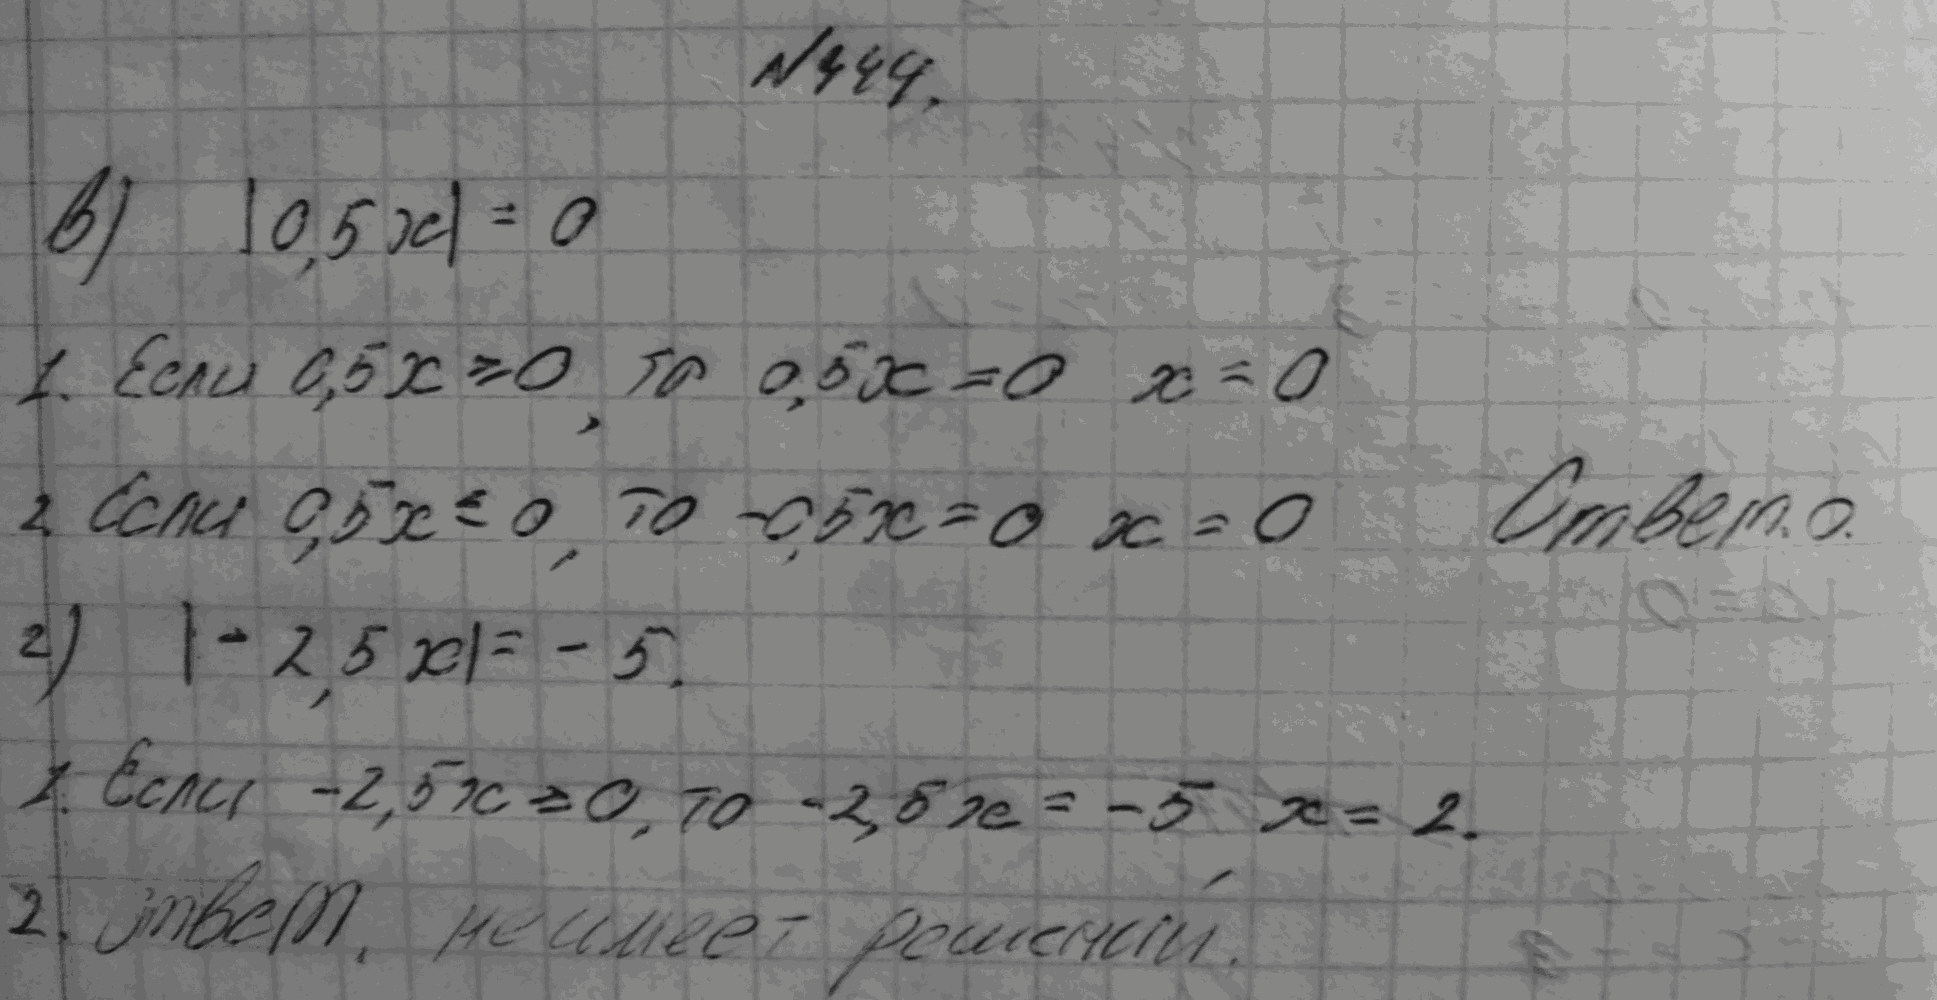 №444.
в) |0,5x| = 0
1. Если 0,5x ⩾ 0, то 0,5x = 0 x = 0
2 Если 0,5x ⩽ 0, то -0,5x = 0 x = 0 Ответ. 0.
г) |- 2,5x| = - 5.
1. Если -2,5x ⩾ 0, то -2,5x = -5 x = 2.
2. Ответ. не имеет решений.